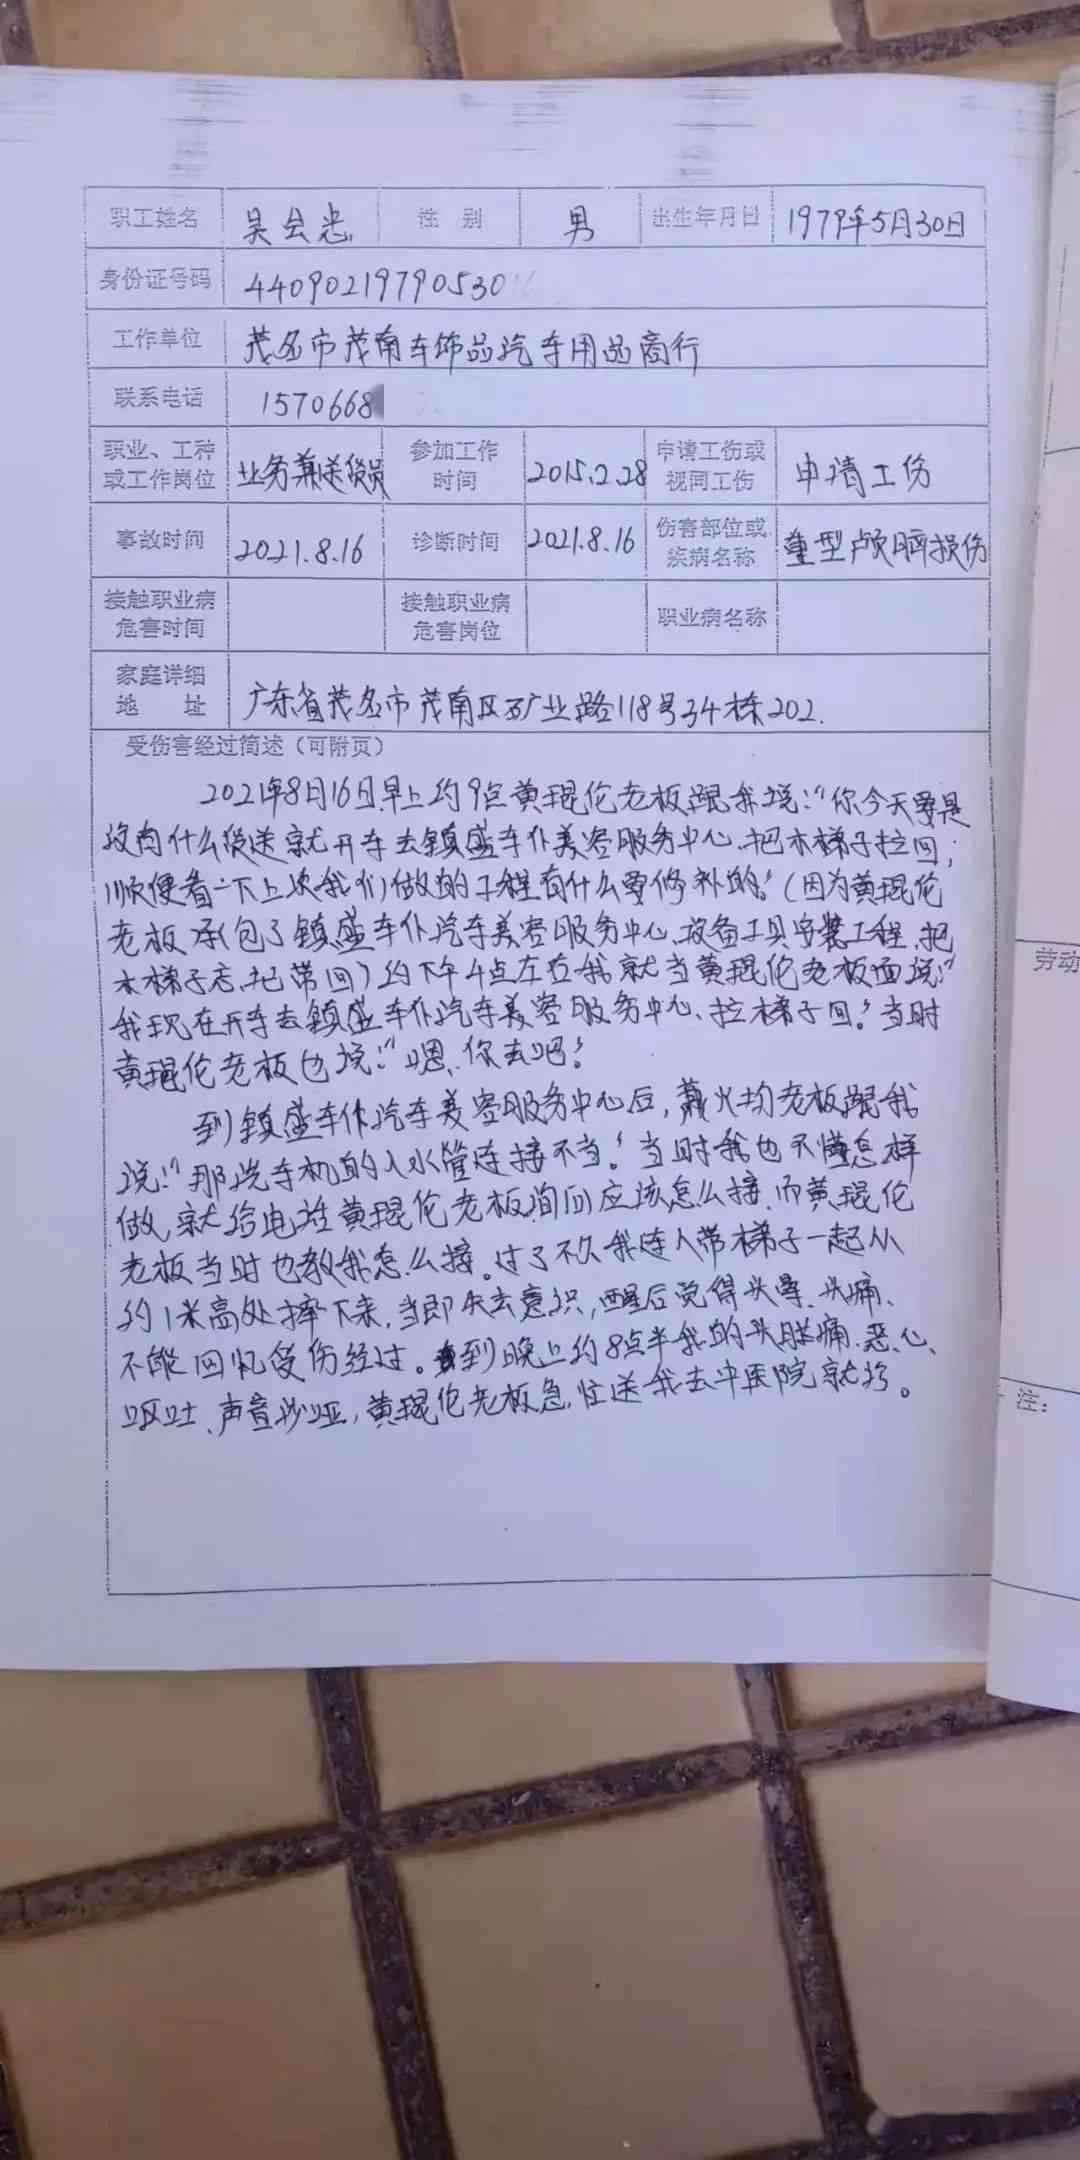 职工姓名 吴会忠 性 别 男 出生年月日 1979年5月30日
身份证号码 44090219790530
工作单位 茂名市茂南车饰品汽车用品商行
联系电话 1570668
职业、工种或工作岗位 业务兼送货员 参加工作时间 2015.2.28 申请工伤或视同工伤 申请工伤
事故时间 2021.8.16 诊断时间 2021.8.16 伤害部位或疾病名称 重型颅脑损伤
接触职业病危害时间 接触职业病危害岗位 职业病名称
家庭详细地 址 广东省茂名市茂南区矿业路118号34栋202.
受伤害经过简述（可附页）
2021年8月16日早上约9点黄琨伦老板跟我说:“你今天要是
没有什么货送就开车去镇盛车仆美容服务中心、把木梯子拉回;
顺便看一下上次我们做的工程有什么要修补的。”(因为黄琨伦
老板承包了镇盛车仆汽车美容服务中心、设备工具安装工程、把
木梯子忘记带回)约下午4点左右我就当黄琨伦老板面说:“
我现在开车去镇盛车仆汽车美容服务中心、拉梯子回。”当时
黄琨伦老板也说:“嗯、你去吧。”
到镇盛车仆汽车美容服务中心后,戴火均老板跟我
说:“那洗车机的入水管连接不当。”当时我也不懂怎样
做,就给电话黄琨伦老板询问应该怎么接、而黄琨伦
老板当时也教我怎么接。过了不久我连人带梯子一起从
约1米高处摔下来,当即失去意识,醒后觉得头晕、头痛、
不能回忆受伤经过。到晚上约8点半我的头胀痛、恶心、
呕吐、声音沙哑,黄琨伦老板急忙送我去中医院就诊。
劳动
注: